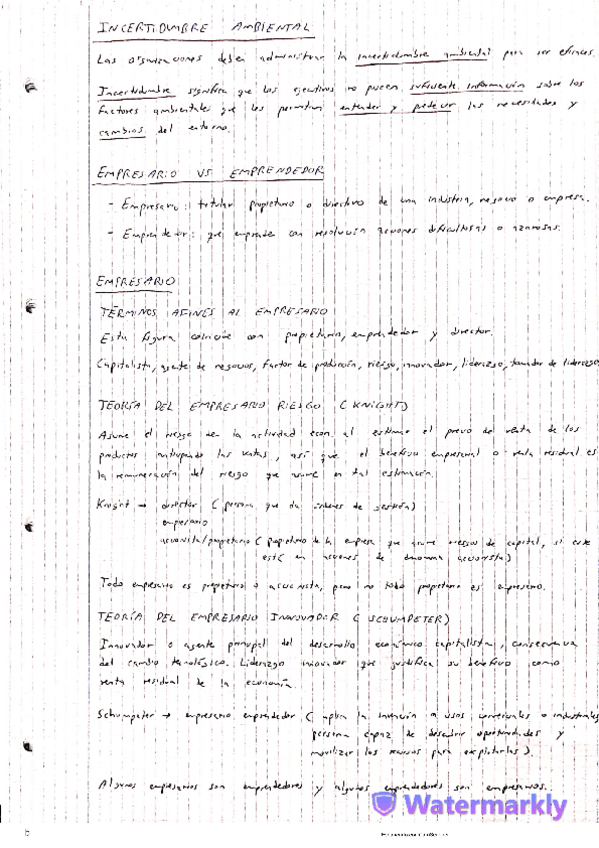 INCERTIDUMBRE AMBIENTAL
Las organizaciones deben administrar la incertidumbre ambiental para ser eficaces.
Incertidumbre significa que los ejecutivos no poseen suficiente información sobre los
factores ambientales que les permitan entender y predecir las necesidades y
cambios del entorno.
EMPRESARIO VS EMPRENDEDOR
- Empresario: titular propietario o directivo de una industria, negocio o empresa.
- Emprendedor: que emprende con resolución acciones dificultosas o azarosas.
EMPRESARIO
TÉRMINOS AFINES AL EMPRESARIO
Esta figura coincide con propietario, emprendedor y director.
Capitalista, agente de negocios, factor de producción, riesgo, innovador, liderazgo, tomador de liderazgo
TEORÍA DEL EMPRESARIO RIESGO (KNIGHT)
Asume el riesgo de la actividad econ. al estimar el precio de venta de los
productos anticipando las ventas, así que el beneficio empresarial o renta residual es
la remuneración del riesgo que asume en tal estimación.
Knight → director (persona que da órdenes de gestión)
empresario
accionista/propietario (propietario de la empresa que asume riesgos de capital, si este
está en acciones se denomina accionista)
Todo empresario es propietario o accionista, pero no todo propietario es empresario.
TEORÍA DEL EMPRESARIO INNOVADOR (SCHUMPETER)
Innovador o agente principal del desarrollo económico capitalista, consecuencia
del cambio tecnológico. Liderazgo innovador que justifica su beneficio como
renta residual de la economía.
Schumpeter → empresario emprendedor (aplica la invención a usos comerciales o industriales,
persona capaz de descubrir oportunidades y
movilizar los recursos para explotarlas).
Algunos empresarios son emprendedores y algunos emprendedores son empresarios.
Watermarkly